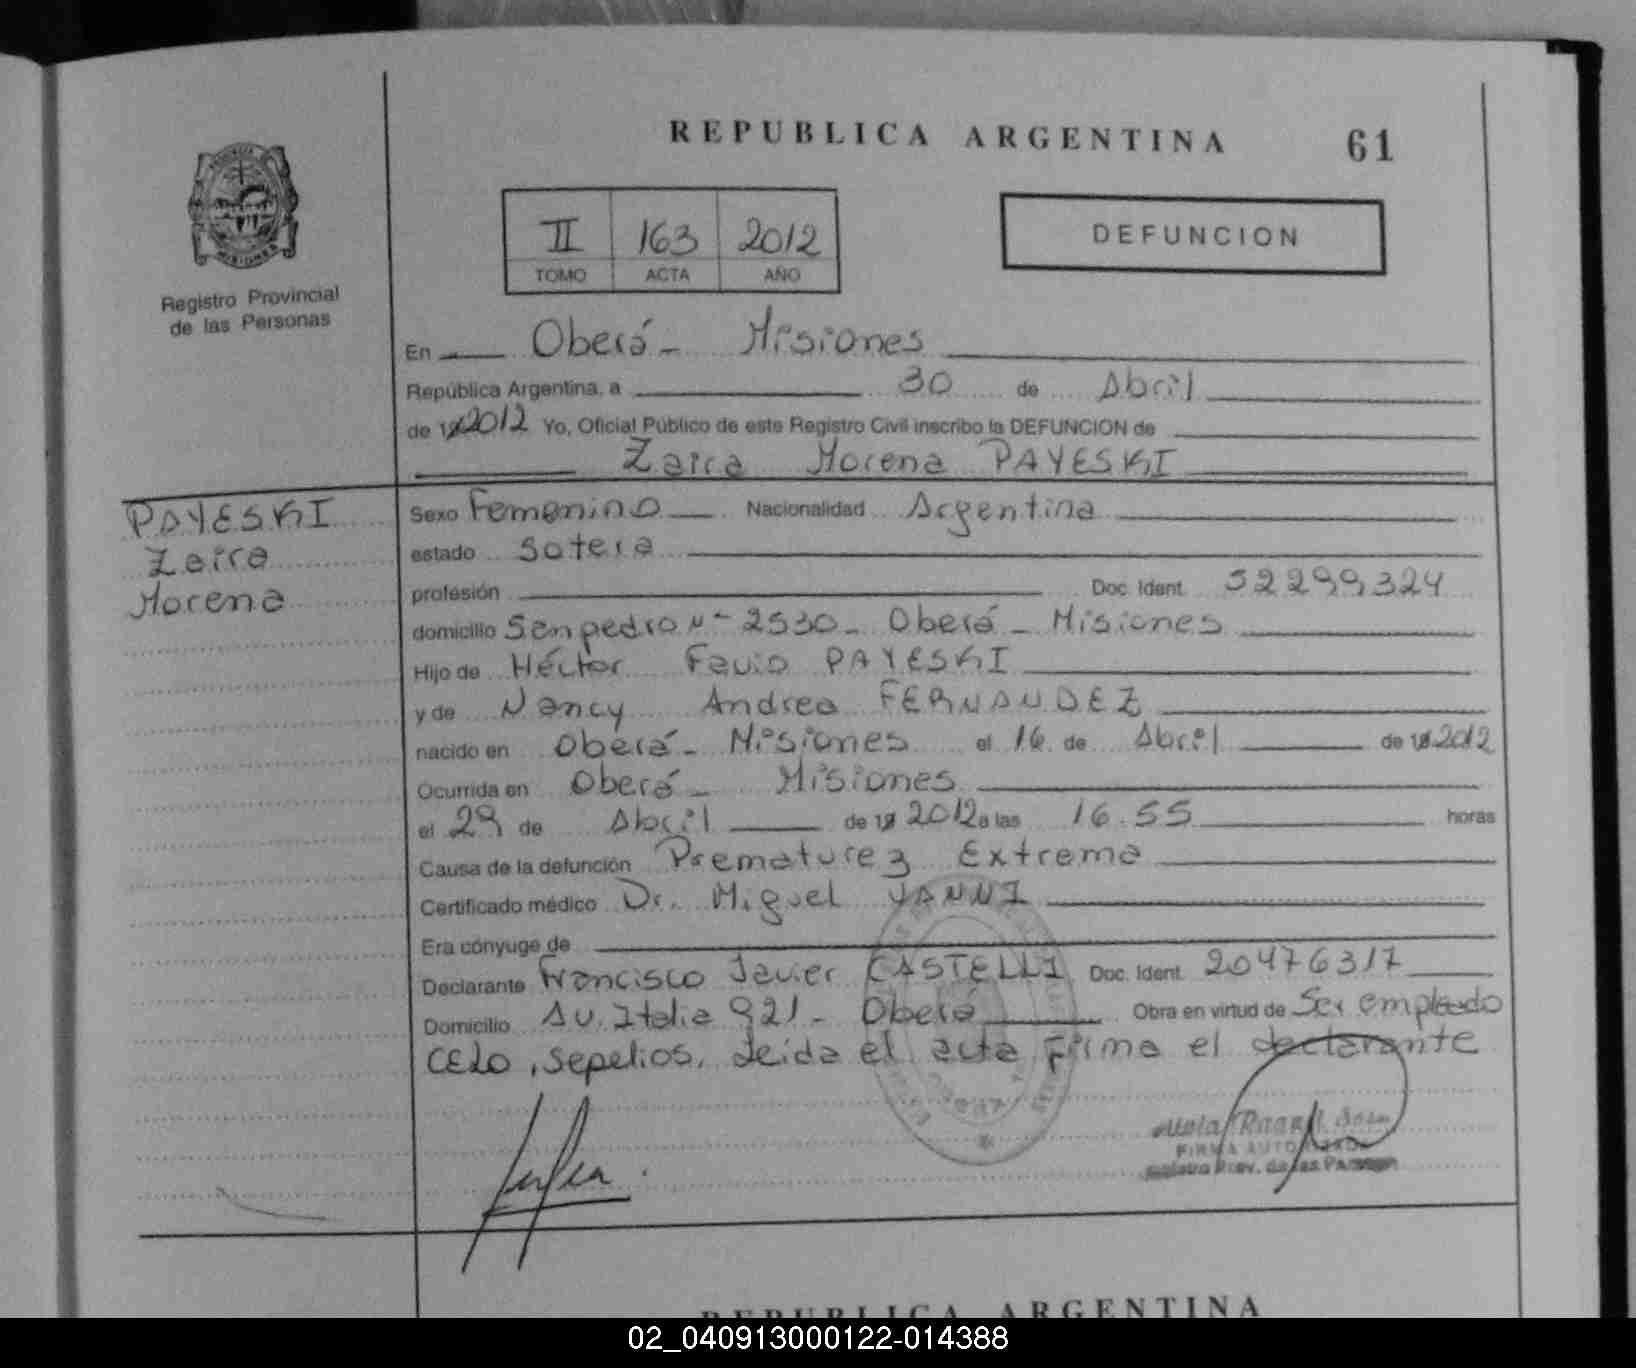 REPUBLICA ARGENTINA
61
II 163 2012
TOMO ACTA AÑO
DEFUNCION
Registro Provincial
de las Personas
En Oberá - Misiones
República Argentina, a 30 de Abril
de 19 2012 Yo, Oficial Público de este Registro Civil inscribo la DEFUNCION de
Zaira Morena PAYESKI
PAYESKI
Zaira
Morena
Sexo Femenino Nacionalidad Argentina
estado Sotera
profesión Doc. Ident. 52299324
domicilio San pedro Nº 2530 - Oberá - Misiones
Hijo de Héctor Favio PAYESKI
y de Nancy Andrea FERNANDEZ
nacido en Oberá - Misiones el 16 de Abril de 19 2012
Ocurrida en Oberá - Misiones
el 29 de Abril de 19 2012 a las 16.55 horas
Causa de la defunción Prematurez Extrema
Certificado médico Dr. Miguel YANNI
Era cónyuge de
Declarante Francisco Javier CASTELLI Doc. Ident. 20476317
Domicilio Av. Italia 921 - Oberá Obra en virtud de Ser empleado
CELO, Sepelios. Leida el acta Firma el declarante
FIRMA AUTORIZADA
Registro Prov. de las Personas
REPUBLICA ARGENTINA
02_040913000122-014388